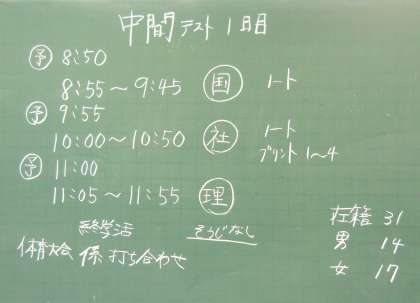 中間テスト1日目
予 8:50
8:55～9:45 国 ノート
予 9:55
10:00～10:50 社 ノート
プリント 1～4
予 11:00
11:05～11:55 理
終学活 そうじなし
体育大会 係打ち合わせ
在籍 31
男 14
女 17